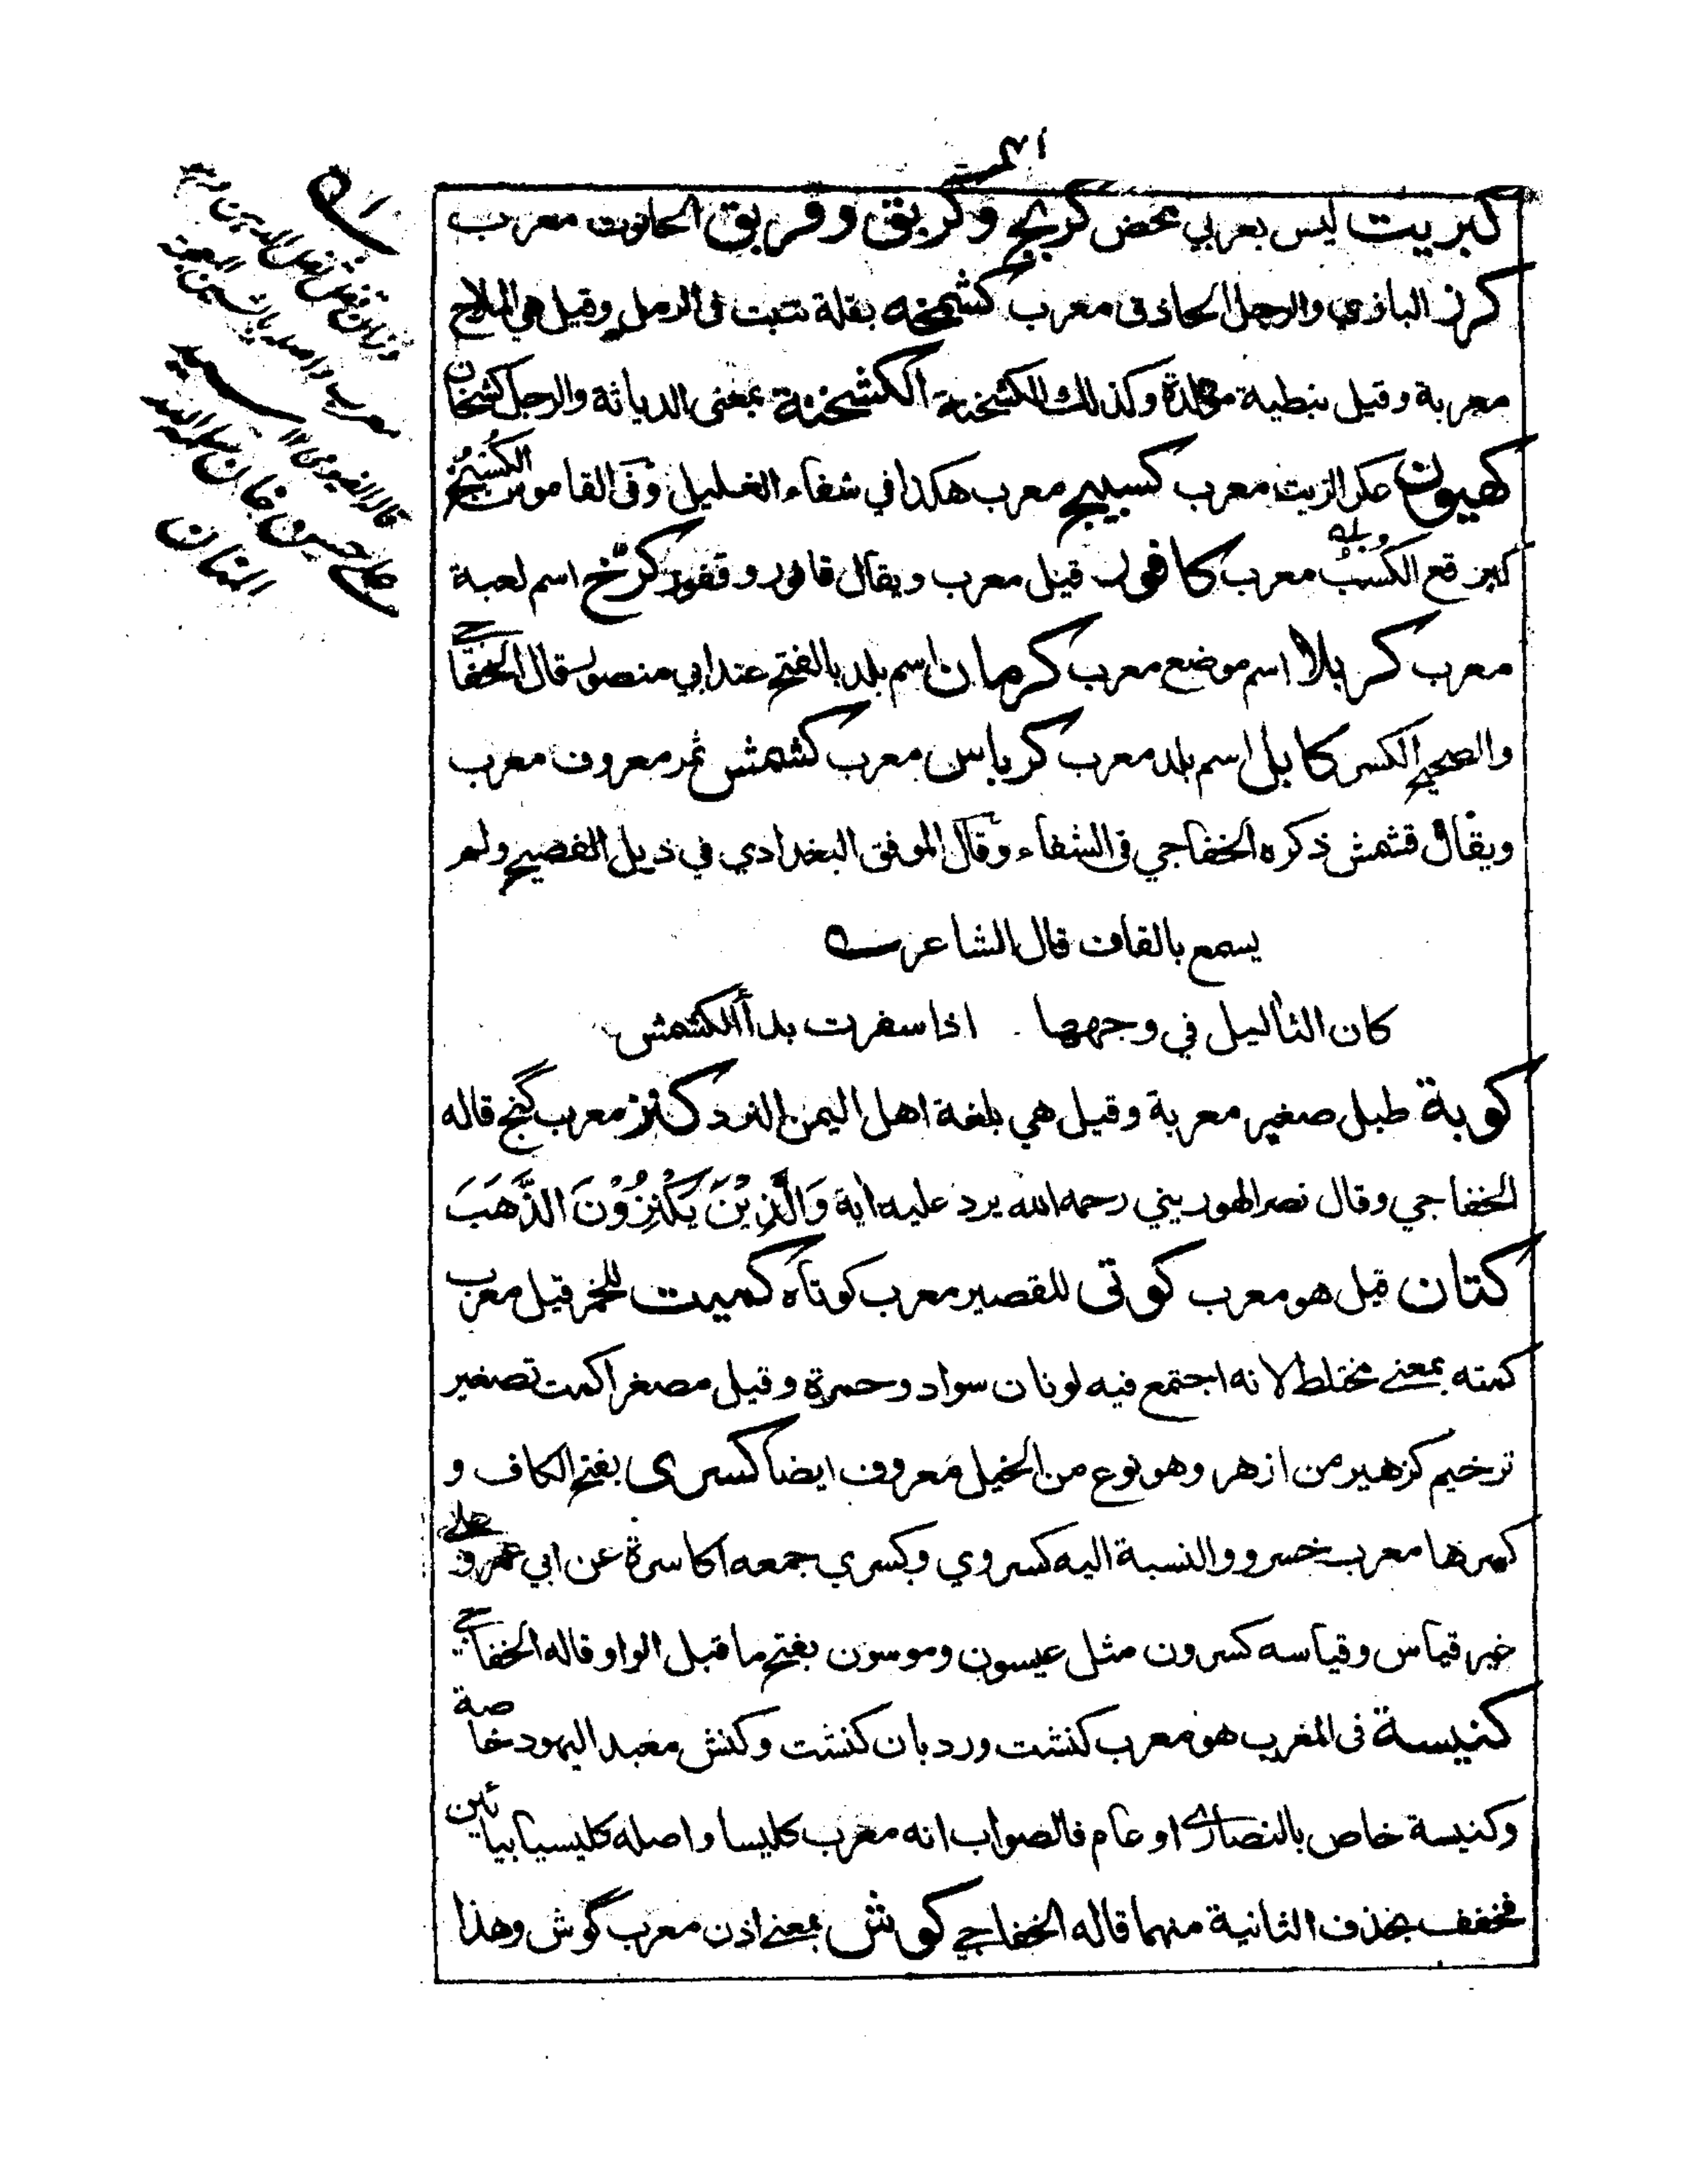 كبريت ليس بعربي محض كربج وكربق وقربق الحانوت معرب
كرز البازي والرجل الحاذق معرب كشمخه بقلة تنبت في الرمل وقيل هي الملاح
معربة وقيل نبطية وكذلك الكشخنة الكشخنة بمعنى الدياثة والرجل كشخان
كهيون عكر الزيت معرب كسبيج معرب هكذا في شفاء الغليل وفي القاموس الكسبج
كبرقع الكسب وبله معرب كافور قيل معرب ويقال قافور وقفور كرخ اسم لعبة
معرب كربلا اسم موضع معرب كرمان اسم بلد بالفتح عند ابي منصور قال الخفاجي
والصحيح الكسر كابل اسم بلد معرب كرباس معرب كشمش ثمر معروف معرب
ويقال قشمش ذكره الخفاجي في الشفاء وقال الموفق البغدادي في ذيل الفصيح ولم
يسمع بالقاف قال الشاعر
كان الثأليل في وجهها اذا سفرت بدأ الكشمش
كوبة طبل صغير معربة وقيل هي بلغة اهل اليمن النرد كنز معرب گنج قاله
الخفاجي وقال نصر الهوريني رحمه الله يرد عليه اية وَالَّذِيْنَ يَكْنِزُوْنَ الذَّهَبَ
كتان قيل هو معرب كوتى للقصير معرب كوتاه كميت للخمر قيل معرب
كمته بمعنى مختلط لانه اجتمع فيه لونان سواد وحمرة وقيل مصغر اكمت تصغير
ترخيم كزهير من ازهر وهو نوع من الخيل معروف ايضا كسرى بفتح الكاف و
كسرها معرب خسرو والنسبة اليه كسروي وكسري جمعه اكاسرة عن ابي عمرو على
غير قياس وقياسه كسرون مثل عيسون وموسون بفتح ما قبل الواو قاله الخفاجي
كنيسة في المغرب هو معرب كنشت ورد بان كنشت وكنش معبد اليهود خاصة
وكنيسة خاص بالنصارى او عام فالصواب انه معرب كليسا واصله كليسيا بيائين
فخفف بحذف الثانية منهما قاله الخفاجي كوش بمعنى اذن معرب گوش وهذا